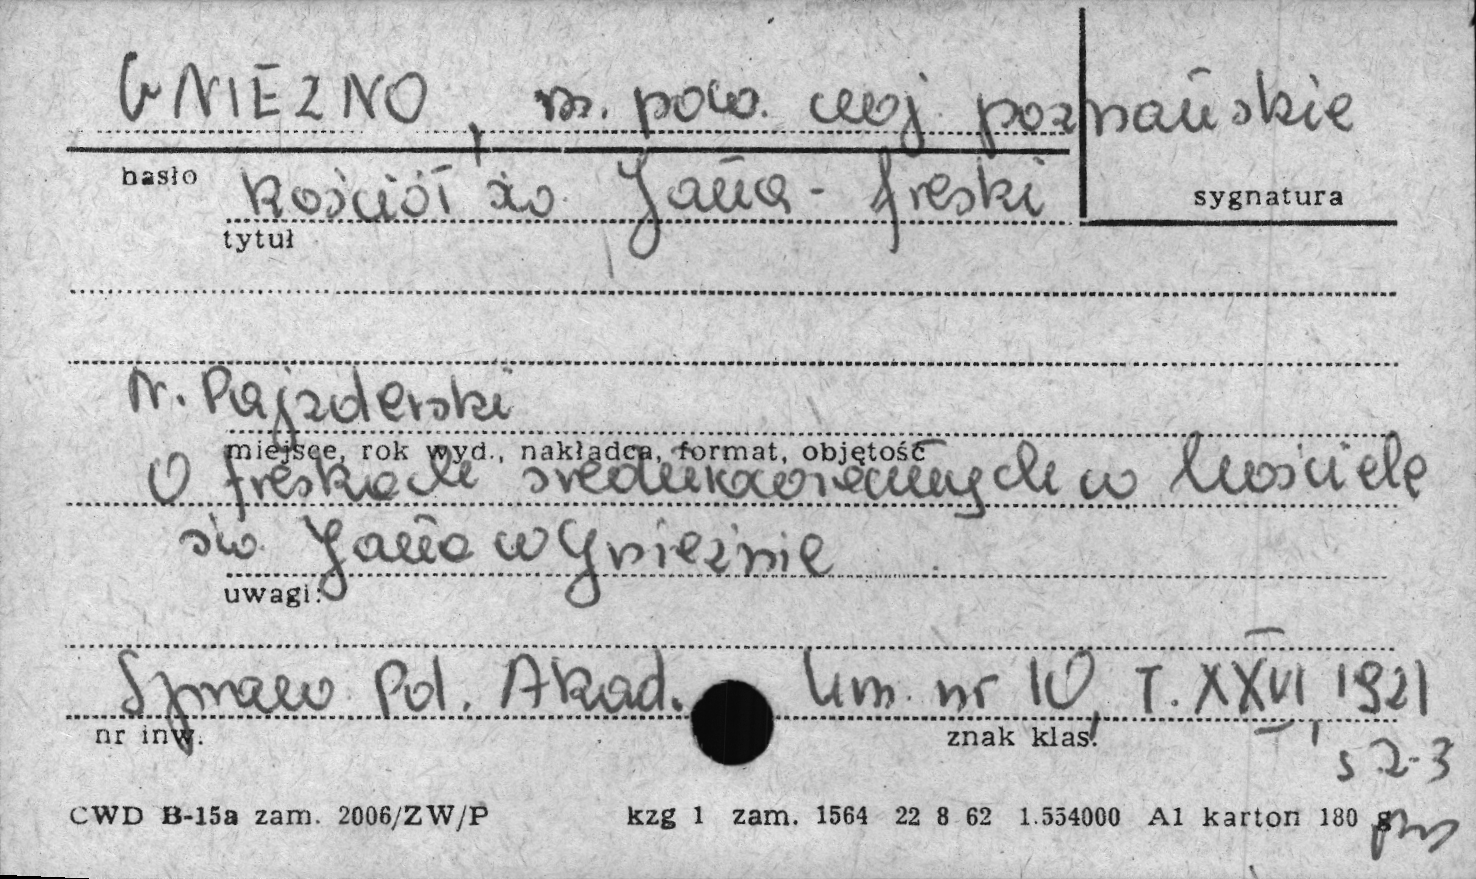 GNIEZNO, m. pow. woj. poznańskie
hasło
kościół św. Jana - freski
sygnatura
tytuł
N. Pajzderski
miejsce, rok wyd., nakładca, format, objętość
O freskach średniowiecznych w kościele
św. Jana w Gnieźnie
uwagi:
Spraw. Pol. Akad. Um. nr 10, T. XXVI, 1921
nr inw.
znak klas.
s 2-3
CWD B-15a zam. 2006/ZW/P kzg 1 zam. 1564 22 8 62 1.554000 A1 karton 180 g